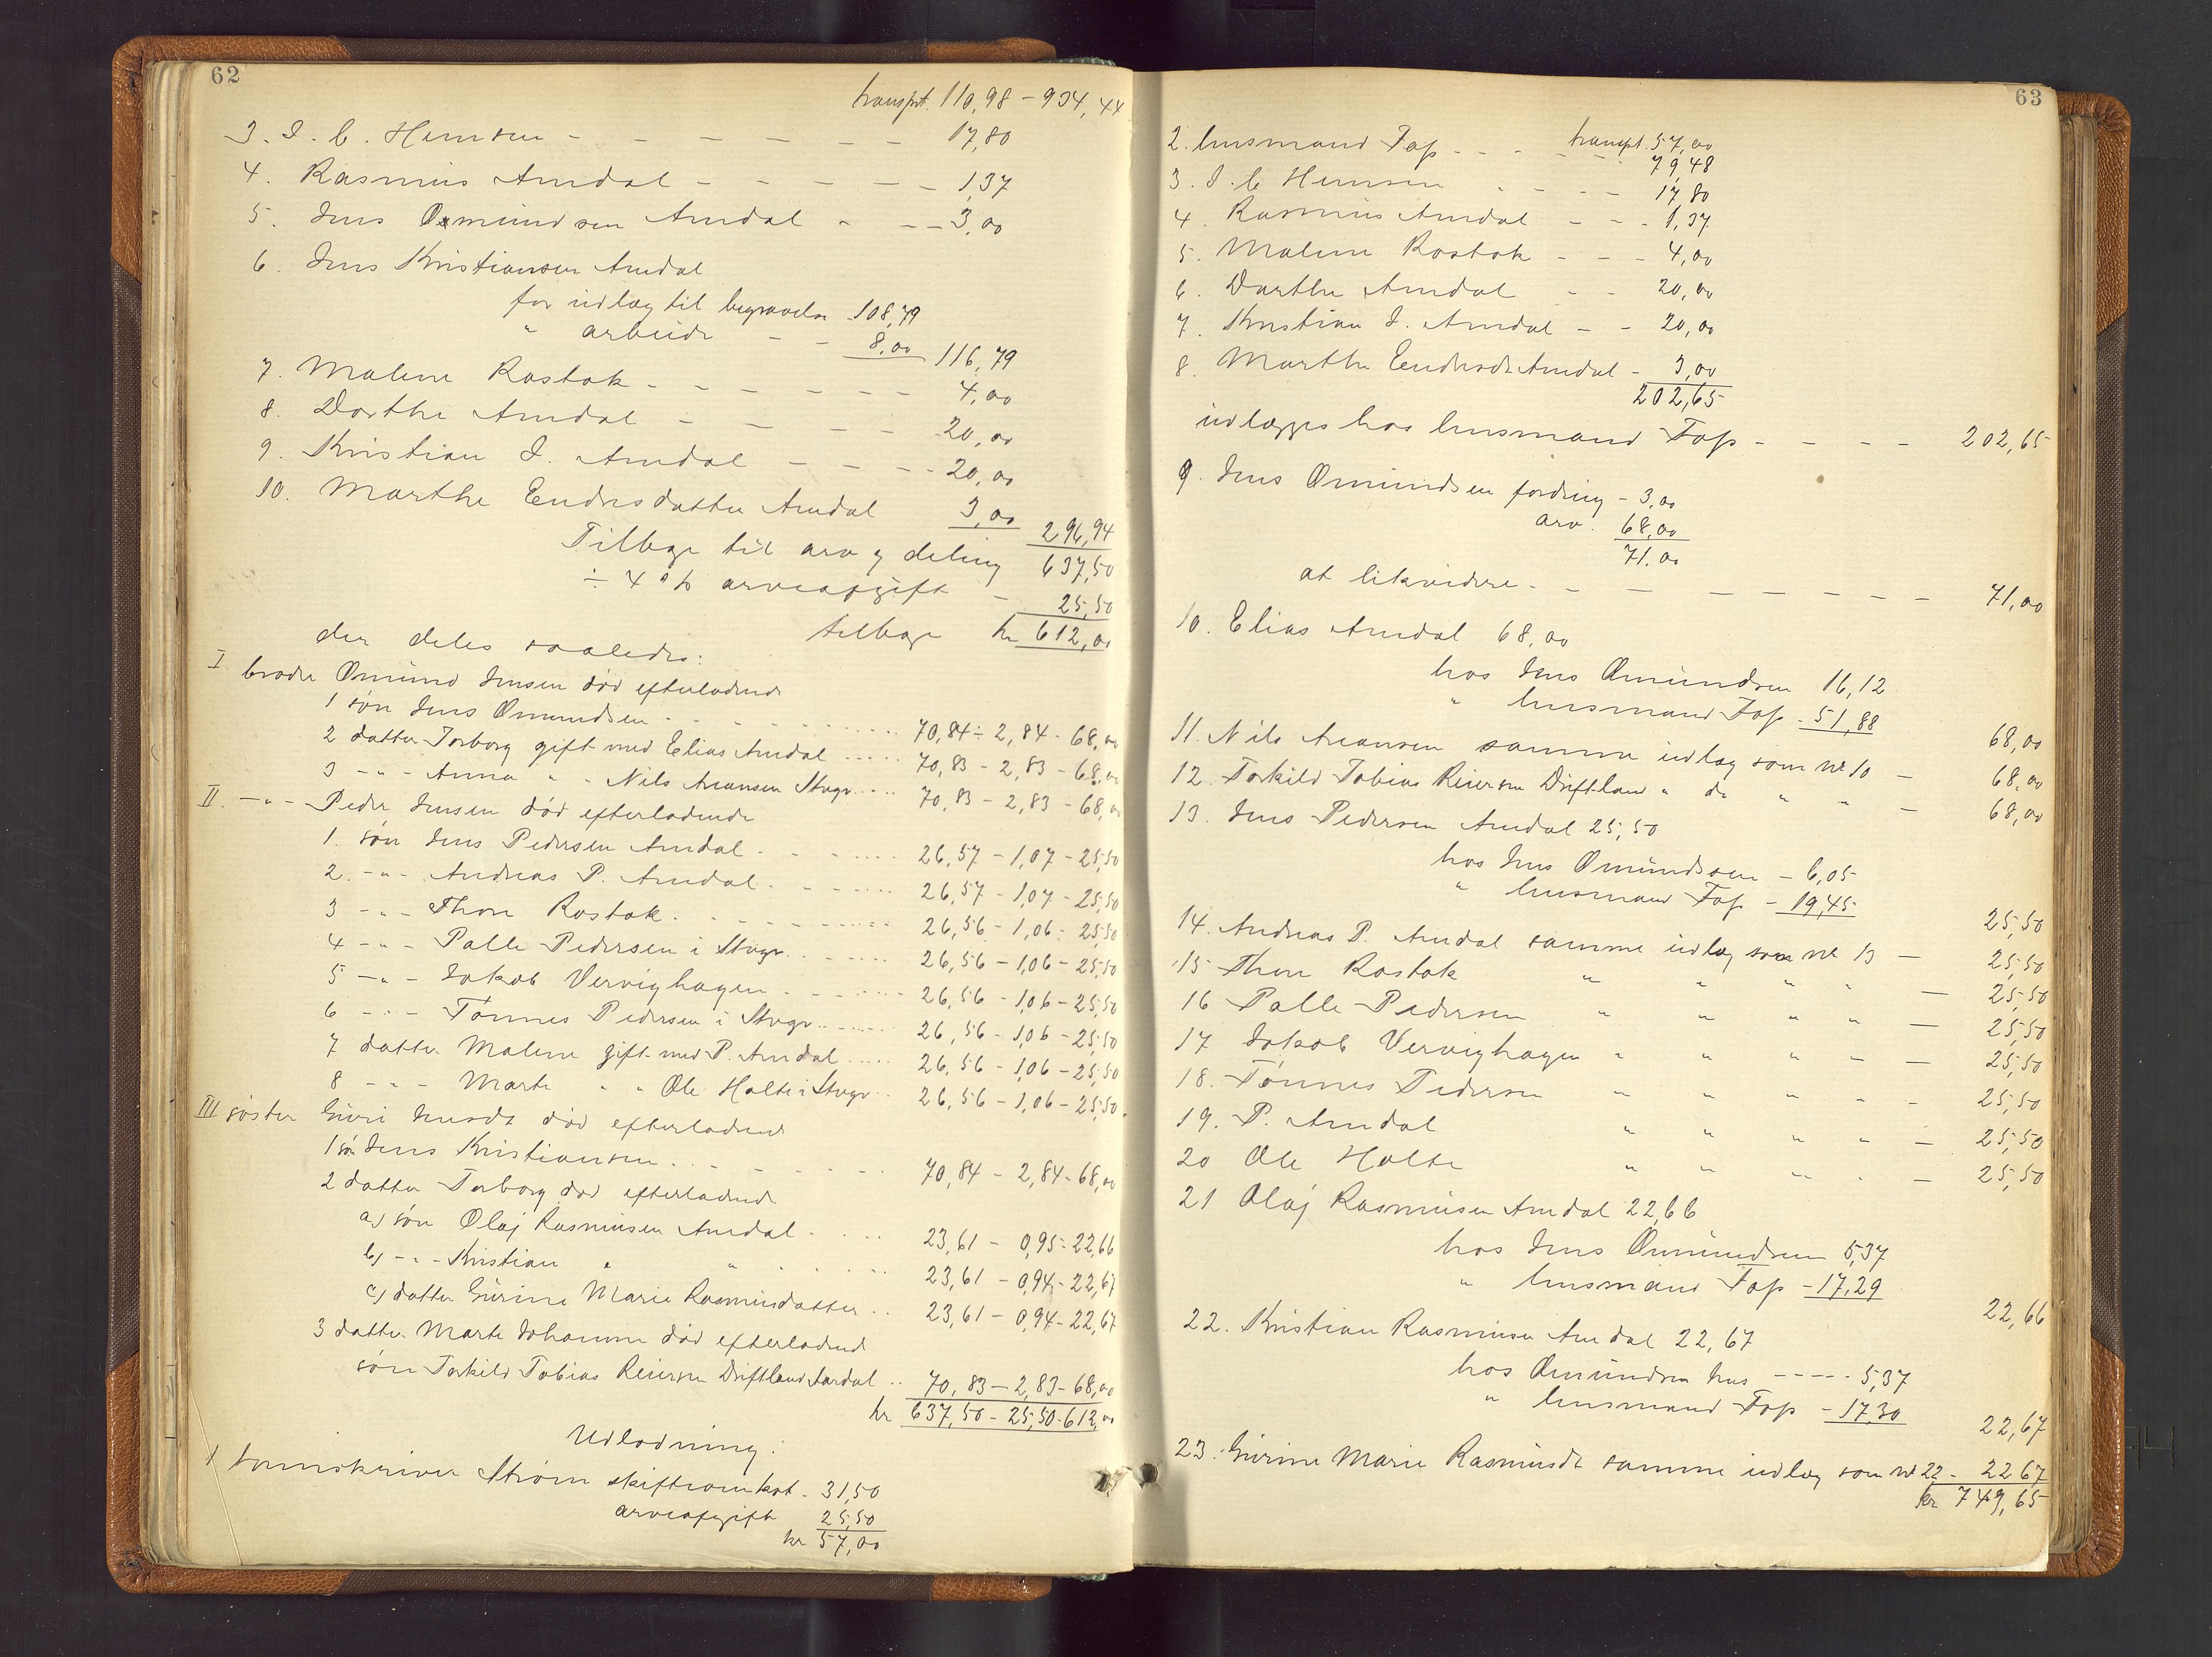 62
transpt. 110,98 - 934,44
3. I. C. Hemsen - - - - - - 17,80
4. Rasmus Amdal - - - - - 1,37
5. Jens Omundsen Amdal - - - 3,00
6. Jens Kristiansen Amdal
for udlæg til begravelse 108,79
" arbeide - - 8,00 116,79
7. Malene Rostok - - - - - - 4,00
8. Dorthe Amdal - - - - - 20,00
9. Kristian I. Amdal - - - - 20,00
10. Marthe Endresdatter Amdal 3,00 296,94
Tilbage til arv og deling 637,50
÷ 4 % arveafgift - 25,50
tilbage kr 612,00
der deles saaledes:
I broder Omund Jensen død efterladende
1 søn Jens Omundsen - - - - 70,84 ÷ 2,84 - 68,00
2 datter Torborg gift med Elias Amdal ..... 70,83 - 2,83 - 68,00
3 - " - Anna " - Nils Areansen Stvgr. ... 70,83 - 2,83 - 68,00
II. - " - Peder Jensen død efterladende
1. søn Jens Pedersen Amdal - - .... 26,57 - 1,07 - 25,50
2. - " - Andreas P. Amdal - - .... 26,57 - 1,07 - 25,50
3 - " - Thore Rostok - - - .... 26,56 - 1,06 - 25,50
4 - " - Palle Pedersen i Stvgr. .... 26,56 - 1,06 - 25,50
5 - " - Jakob Vervighagen - - .... 26,56 - 1,06 - 25,50
6 - " - Tønnes Pedersen i Stvgr. .... 26,56 - 1,06 - 25,50
7 datter Malene gift med P. Amdal ..... 26,56 - 1,06 - 25,50
8 - " - Marte " " Ole Holte i Stvgr .. 26,56 - 1,06 - 25,50
III søster Guri Jensdt død efterladende
1 søn Jens Kristiansen - - - - 70,84 - 2,84 - 68,00
2 datter Torborg død efterladende
a) søn Olaj Rasmusen Amdal - ... 23,61 - 0,95 - 22,66
b) - " - Kristian " " .... 23,61 - 0,94 - 22,67
c) datter Gurine Marie Rasmusdatter .. 23,61 - 0,94 - 22,67
3 datter Marte Johanne død efterladende
søn Torkild Tobias Reiersen Driftland Aardal .. 70,83 - 2,83 - 68,00
kr 637,50 - 25,50 - 612,00
Udlodning:
1 Sorenskriver Strøm skifteomkost. 31,50
arveafgift 25,50
kr 57,00
63
transpt. 57,00
2. husmand Tap - - - - 79,48
3. I. C. Hemsen - - - - 17,80
4. Rasmus Amdal - - - 1,37
5. Malene Rostok - - - 4,00
6. Dorthe Amdal - - 20,00
7. Kristian I. Amdal - - 20,00
8. Marthe Endresdt Amdal - 3,00
202,65
udlægges hos husmand Tap - - - - 202,65
9. Jens Omundsen fordring - 3,00
arv. 68,00
71,00
at likvidere - - - - - - - 71,00
10. Elias Amdal 68,00
hos Jens Omundsen 16,12
" husmand Tap - 51,88
68,00
11. Nils Areansen samme udlæg som No 10 - 68,00
12. Torkild Tobias Reiersen Driftland " do " " - 68,00
13. Jens Pedersen Amdal 25,50
hos Jens Omundsen - 6,05
" husmand Tap - 19,45
25,50
14. Andreas P. Amdal samme udlæg som No 13 - 25,50
15 Thore Rostok " " " " - 25,50
16 Palle Pedersen " " " " - 25,50
17 Jakob Vervighagen " " " " - 25,50
18. Tønnes Pedersen " " " " - 25,50
19. P. Amdal " " " " - 25,50
20 Ole Holte " " " " - 25,50
21 Olaj Rasmusen Amdal 22,66
hos Jens Omundsen 5,37
" husmand Tap - 17,29
22,66
22. Kristian Rasmusen Amdal 22,67
hos Omundsen Jens ----- 5,37
" husmand Tap - 17,30
22,67
23. Gurine Marie Rasmusdt samme udlæg som No 22 - 22 67
kr 749,65